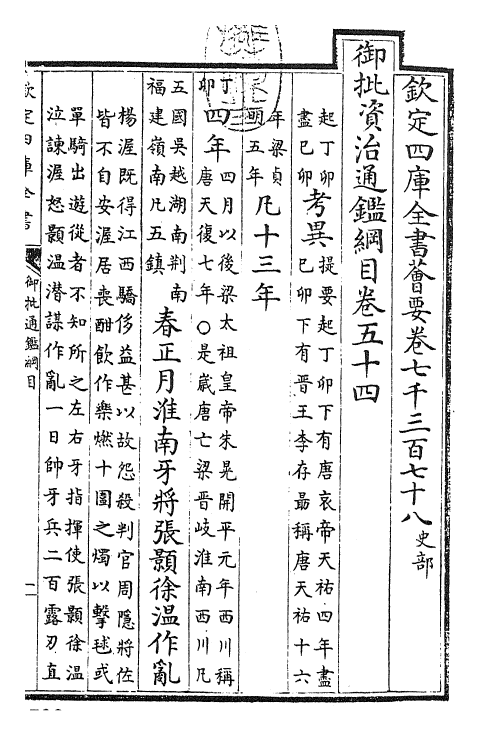 欽定四庫全書薈要卷七千三百七十八 史部
御批資治通鑑綱目卷五十四
起丁卯
盡己卯
考異
提要起丁卯下有唐哀帝天祐四年盡
己卯下有晋王李存勗稱唐天祐十六
年梁貞
明五年
凡十三年
丁
卯
四年
四月以後梁太祖皇帝朱晃開平元年西川稱
唐天復七年○是歲唐亡梁晉岐淮南西川凡
五國吳越湖南荆南
福建嶺南凡五鎮
春正月淮南牙將張顥徐温作亂
楊渥既得江西驕侈益甚以故怨殺判官周隱將佐
皆不自安渥居喪酣飲作樂燃十圍之燭以擊毬或
單騎出遊從者不知所之左右牙指揮使張顥徐温
泣諫渥怒顥温潜謀作亂一日帥牙兵二百露刃直
欽定四庫全書
御批通鑑綱目
一